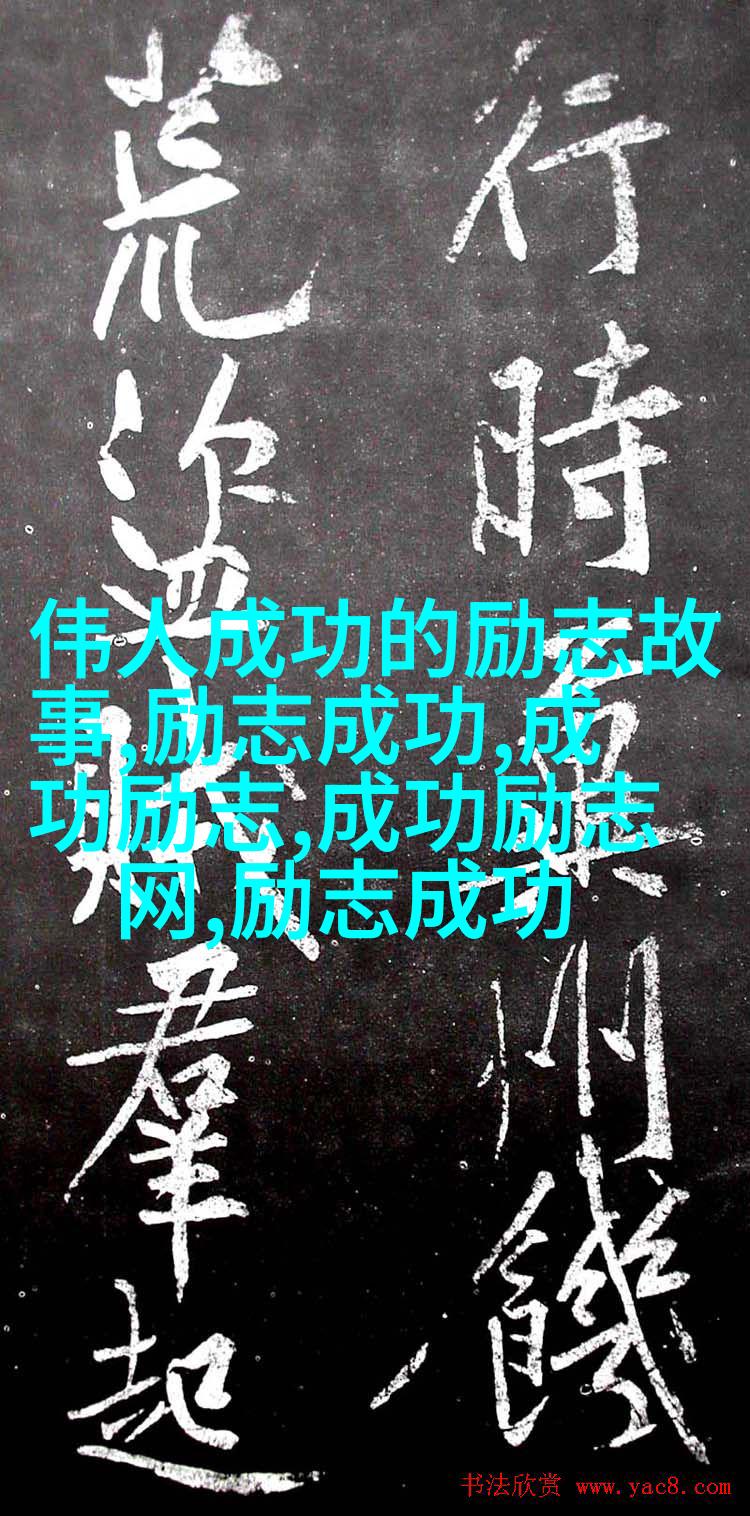 行時州饑
荒盜賊羣起
伟人成功的励志故
事,励志成功,成
功励志,成功励志
网,励志成功
书法欣赏 www.yac8.com